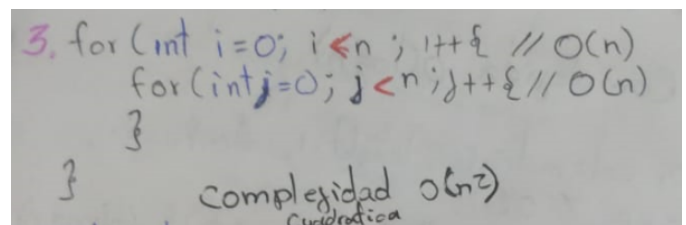 3. for (int i=0; i<n ; i++{ // O(n)
for(int j=0; j<n ; j++{ // O(n)
}
}
complejidad O(n²)
cuadratica